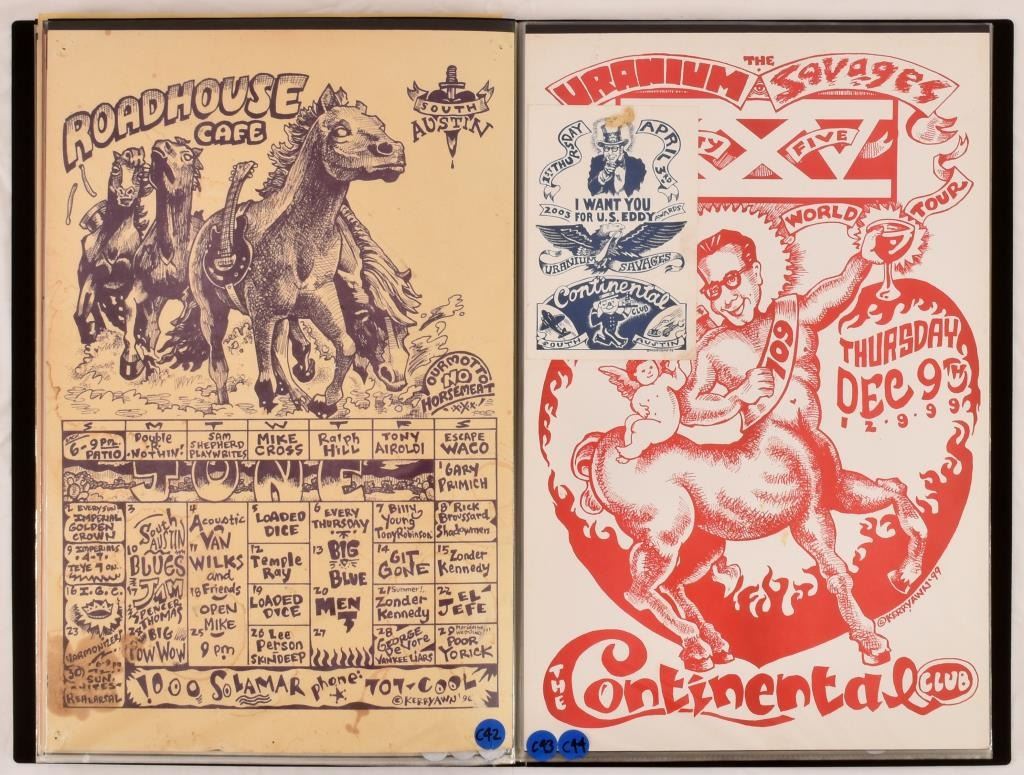 ROADHOUSE
CAFE
SOUTH
AUSTIN
OUR MOTTO
NO
HORSEMEAT
S M T W T F S
6-9 P.M.
PATIO
Double
R
Nothin'
SAM
SHEPHERD
PLAYWRITES
MIKE
CROSS
Ralph
Hill
TONY
AIROLDI
ESCAPE
WACO
JUNE
1 GARY
PRIMICH
2 EVERY SUN
IMPERIAL
GOLDEN
CROWN
3
South
AUSTIN
10
BLUES
17
JAM
SPENCER
THOMAS
24 BIG
POW WOW
4
Acoustic
11 VAN
WILKS
and
18 Friends
OPEN
MIKE
25
9 pm
5 LOADED
DICE
12
Temple
Ray
19
LOADED
DICE
26 Lee
Person
SKINDEEP
6 EVERY
THURSDAY
13 BIG
BLUE
20
MEN
27
7 Billy
Yours
Tony Robinson
14
GIT
GONE
21 Summer!
Zonder
Kennedy
28
GEORGE
DeVORE
YANKEE LIARS
8 Rick
Broussard
Shadowmen
15
Zonder
Kennedy
22
EL
JEFE
29
POOR
YORICK
9 IMPERIALS
4-7.
TEYE 9 ON.
16 I.G.C.
23
HARMONIZERS
30
6-9 P
SUN.
REHEARSAL
1000 SOLAMAR phone: 707-COOL
© KERRY AWN '96
C42
THE
URANIUM SAVAGES
XXV
TY FIVE
WORLD TOUR
109
THURSDAY
DEC 9TH
12.9.99
© KERRY AWN '99
THE
Continental
CLUB
1ST THURSDAY APRIL 3RD
I WANT YOU
FOR U.S. EDDY
2003 AWARDS
URANIUM SAVAGES
Continental
CLUB
SOUTH AUSTIN
C43
C44